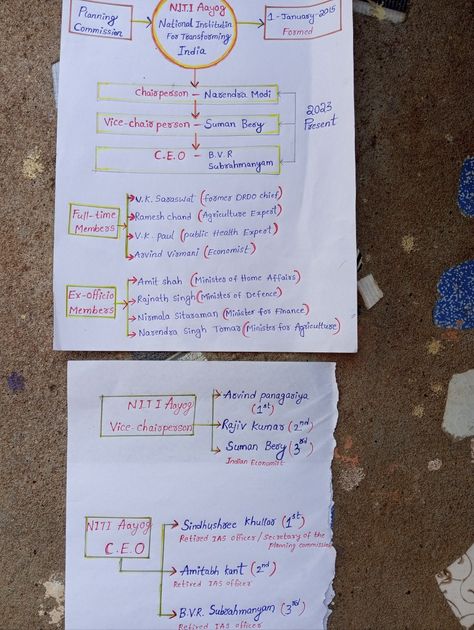 Planning
Commission
NITI Aayog
National Institutin
For Transforming
India
1-January-2015
Formed
Chairperson - Narendra Modi
Vice-chair person - Suman Bery
C.E.O - B.V.R
Subrahmanyam
2023
Present
Full-time
Members
V.K. Saraswat (former DRDO chief)
Ramesh chand (Agriculture Expert)
V.K. Paul (public Health Expert)
Arvind Virmani (Economist)
Ex-officio
Members
Amit shah (Minister of Home Affairs)
Rajnath Singh (Minister of Defence)
Nirmala Sitaraman (Minister for Finance)
Narendra Singh Tomar (Minister for Agriculture)
NITI Aayog
Vice-chairperson
Arvind panagariya
(1st)
Rajiv Kumar (2nd)
Suman Bery (3rd)
Indian Economist
NITI Aayog
C.E.O
Sindhushree Khullar (1st)
Retired IAS officer / Secretary of the
planning commission
Amitabh kant (2nd)
Retired IAS officer
B.V.R. Subrahmanyam (3rd)
Retired IAS officer